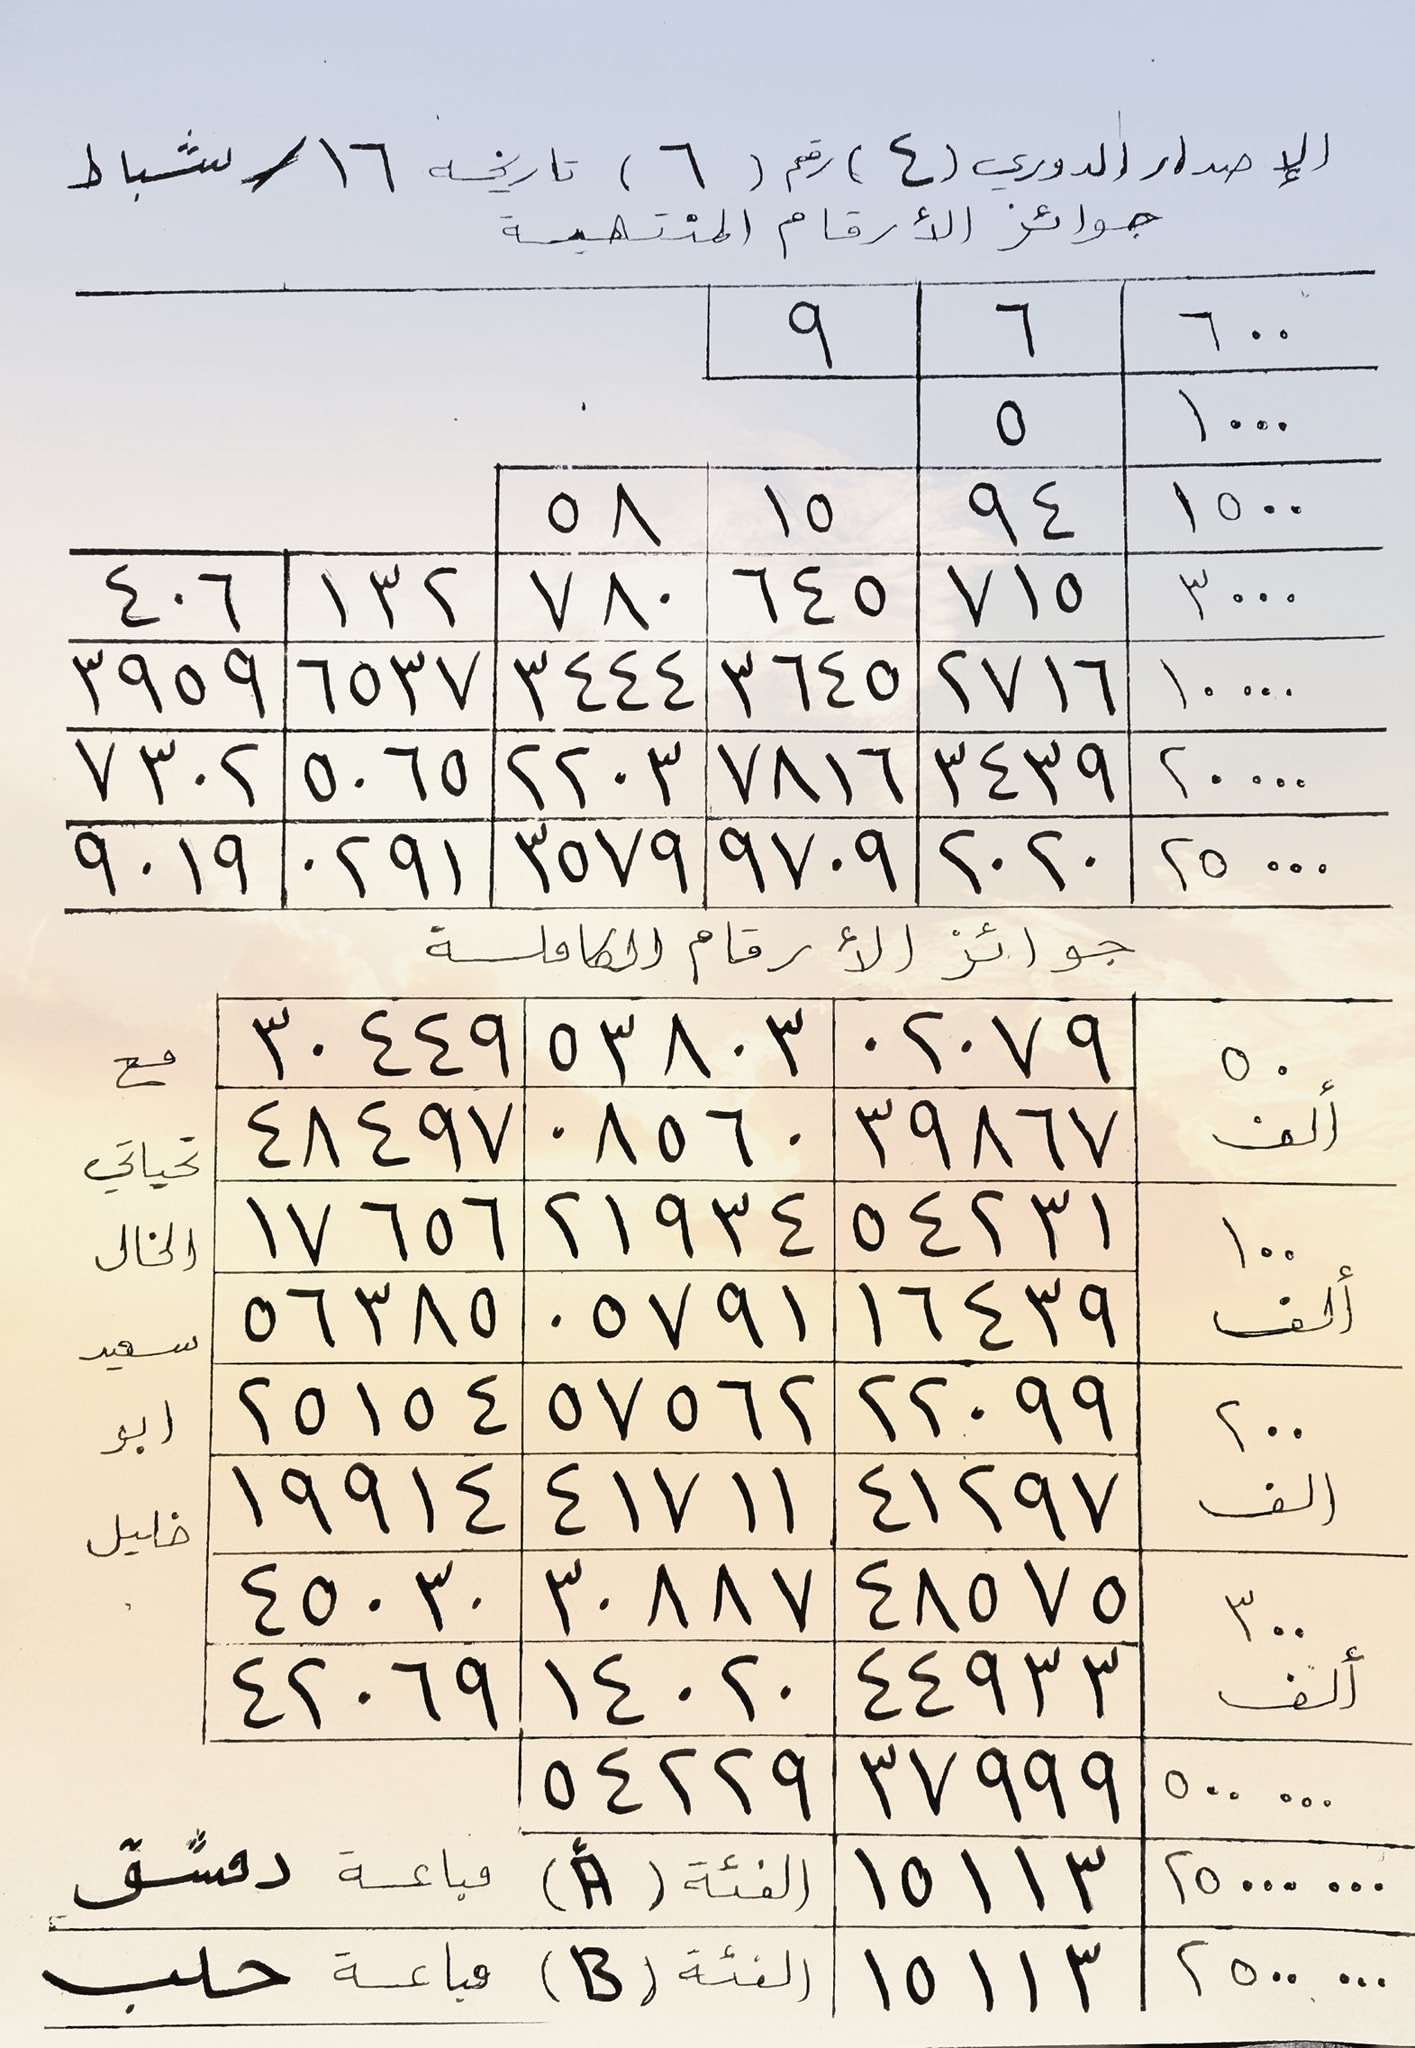 الإصدار الدوري (٤) رقم (٦) تاريخه ١٦/ شباط
جوائز الأرقام المنتهية
٦٠٠ ٦ ٩
١٠٠٠ ٥
١٥٠٠ ٩٤ ١٥ ٥٨
٣٠٠٠ ٧١٥ ٦٤٥ ٧٨٠ ١٣٢ ٤٠٦
١٠٠٠٠ ٢٧١٦ ٣٦٤٥ ٣٤٤٤ ٦٥٣٧ ٣٩٥٩
٢٠٠٠٠ ٣٤٣٩ ٧٨١٦ ٢٢٠٣ ٥٠٦٥ ٧٣٠٢
٢٥٠٠٠ ٢٠٢٠ ٩٧٠٩ ٣٥٧٩ ٠٢٩١ ٩٠١٩
جوائز الأرقام الكاملة
٥٠ ٠٢٠٧٩ ٥٣٨٠٣ ٣٠٤٤٩ مع
ألف ٣٩٨٦٧ ٠٨٥٦٠ ٤٨٤٩٧ تحياتي
١٠٠ ٥٤٢٣١ ٢١٩٣٤ ١٧٦٥٦ الخال
ألف ١٦٤٣٩ ٠٥٧٩١ ٥٦٣٨٥ سعيد
٢٠٠ ٢٢٠٩٩ ٥٧٥٦٢ ٢٥١٥٤ ابو
الف ٤١٢٩٧ ٤١٧١١ ١٩٩١٤ خليل
٣٠٠ ٤٨٥٧٥ ٣٠٨٨٧ ٤٥٠٣٠
ألف ٤٤٩٣٣ ١٤٠٢٠ ٤٢٠٦٩
٥٠٠ ٠٠٠ ٣٧٩٩٩ ٥٤٢٢٩
٢٥٠٠٠ ٠٠٠ ١٥١١٣ الفئة (A) مباعة دمشق
٢٥٠٠ ٠٠٠ ١٥١١٣ الفئة (B) مباعة حلب